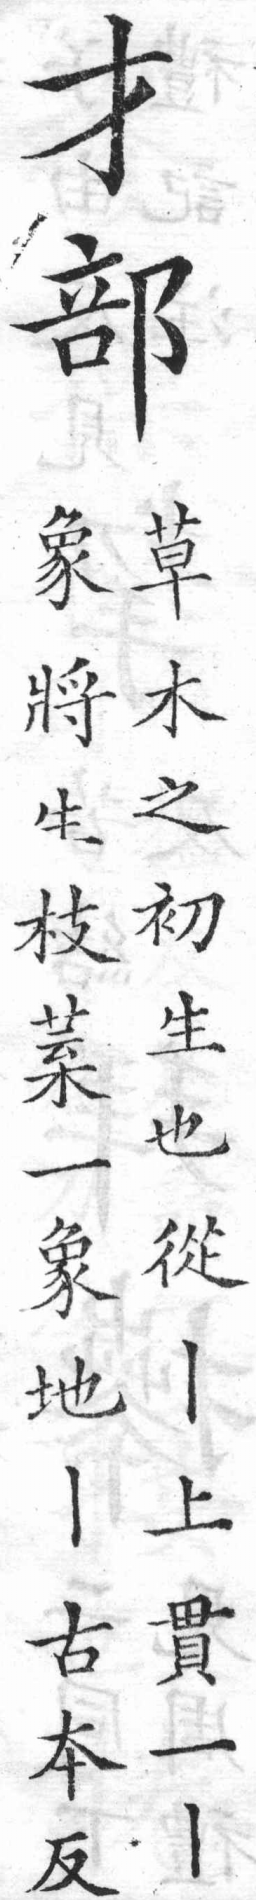 才部
草木之初生也從丨上貫一丨
象將生枝葉一象地丨古本反